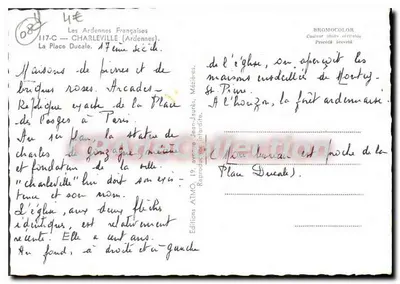 (08)
4€
Les Ardennes Françaises
117-C — CHARLEVILLE (Ardennes).
La Place Ducale. 17ème siècle.
BROMOCOLOR
Maisons de pierres et de
briques roses. Arcades.
Réplique exacte de la Place
des Vosges à Paris.
Au 1er plan, la statue de
charles de Gonzague, 
et fondateur de la ville.
"charleville" lui doit son exis-
tence et son nom.
L'église, aux deux flèches
identiques, est relativement
récente. Elle a cent ans.
Au fond, à droite et à gauche
Editions ATMO, 19, avenue Jean-Jaurès, Mézières.
de l'église, on aperçoit les
maisons de Montcy-
St Pierre.
A l'horizon, la forêt ardennaise.
( bureau est proche de la
Place Ducale).